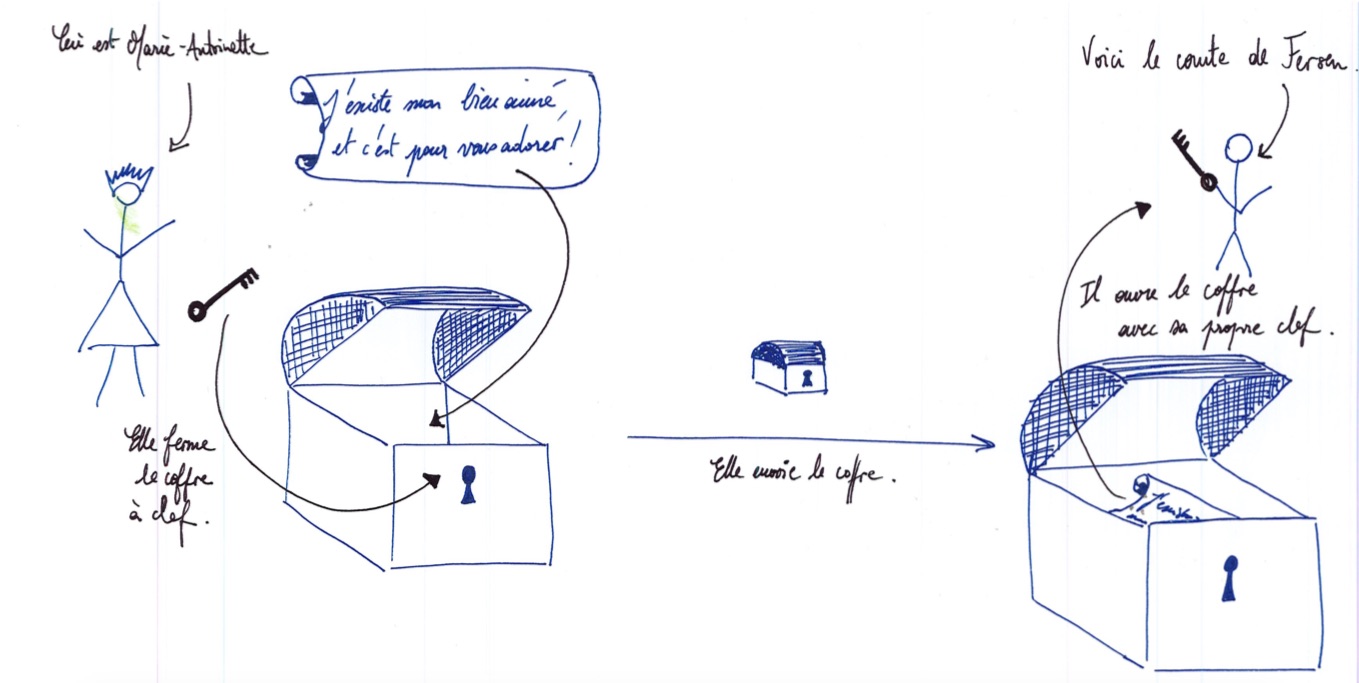 Ceci est Marie-Antoinette
J'existe mon bien aimé
et c'est pour vous adorer !
Elle ferme
le coffre
à clef.
Elle envoie le coffre.
Voici le comte de Fersen.
Il ouvre le coffre
avec sa propre clef.
J'existe